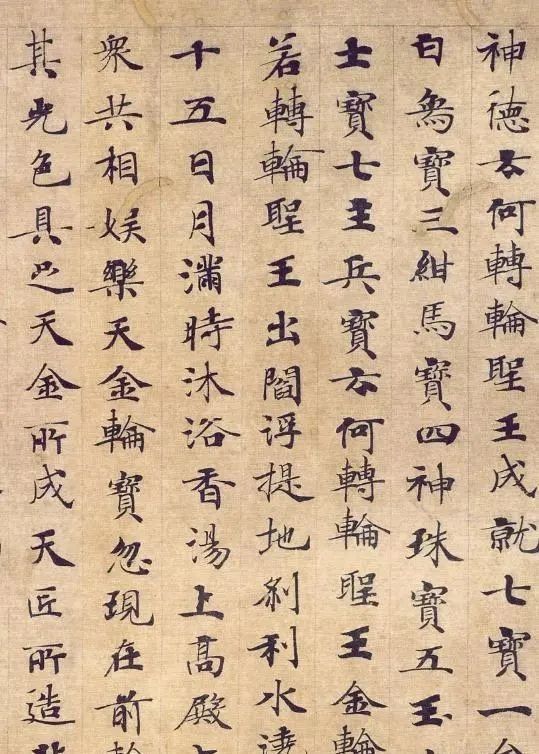 神德云何轉輪聖王成就七寶一金
白象寶三紺馬寶四神珠寶五玉
士寶七主兵寶云何轉輪聖王金輪
若轉輪聖王出閻浮提地刹利水澆
十五日月滿時沐浴香湯上高殿上
衆共相娛樂天金輪寶忽現在前輪
其光色具足天金所成天匠所造